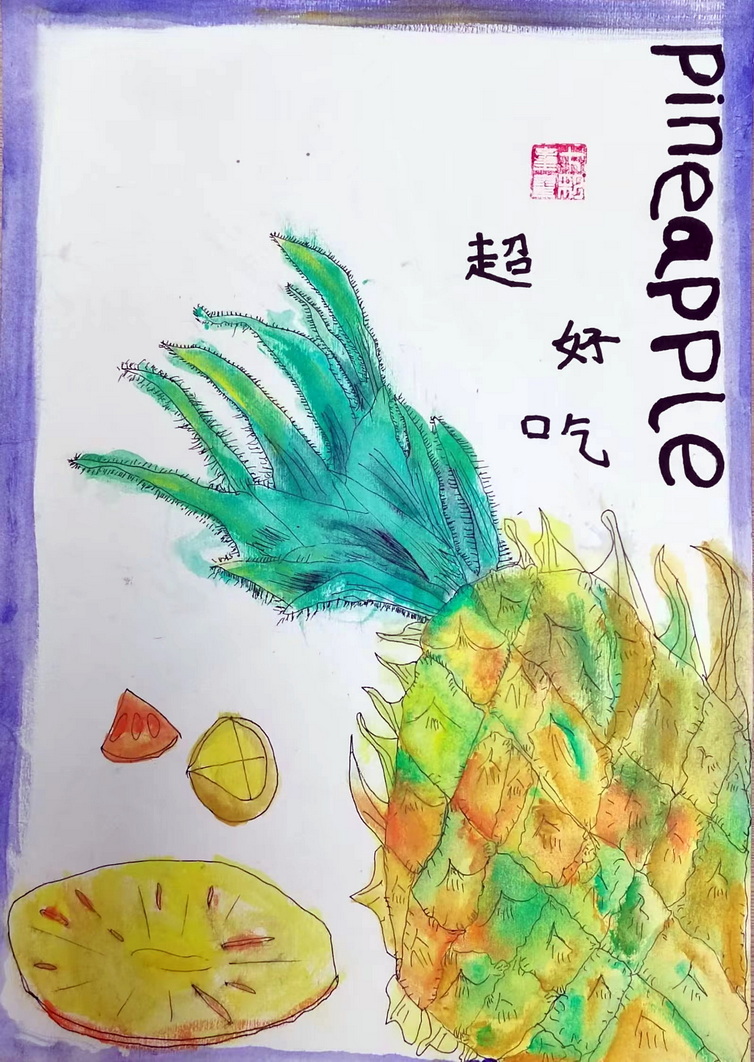 pineapple
超
好
吃